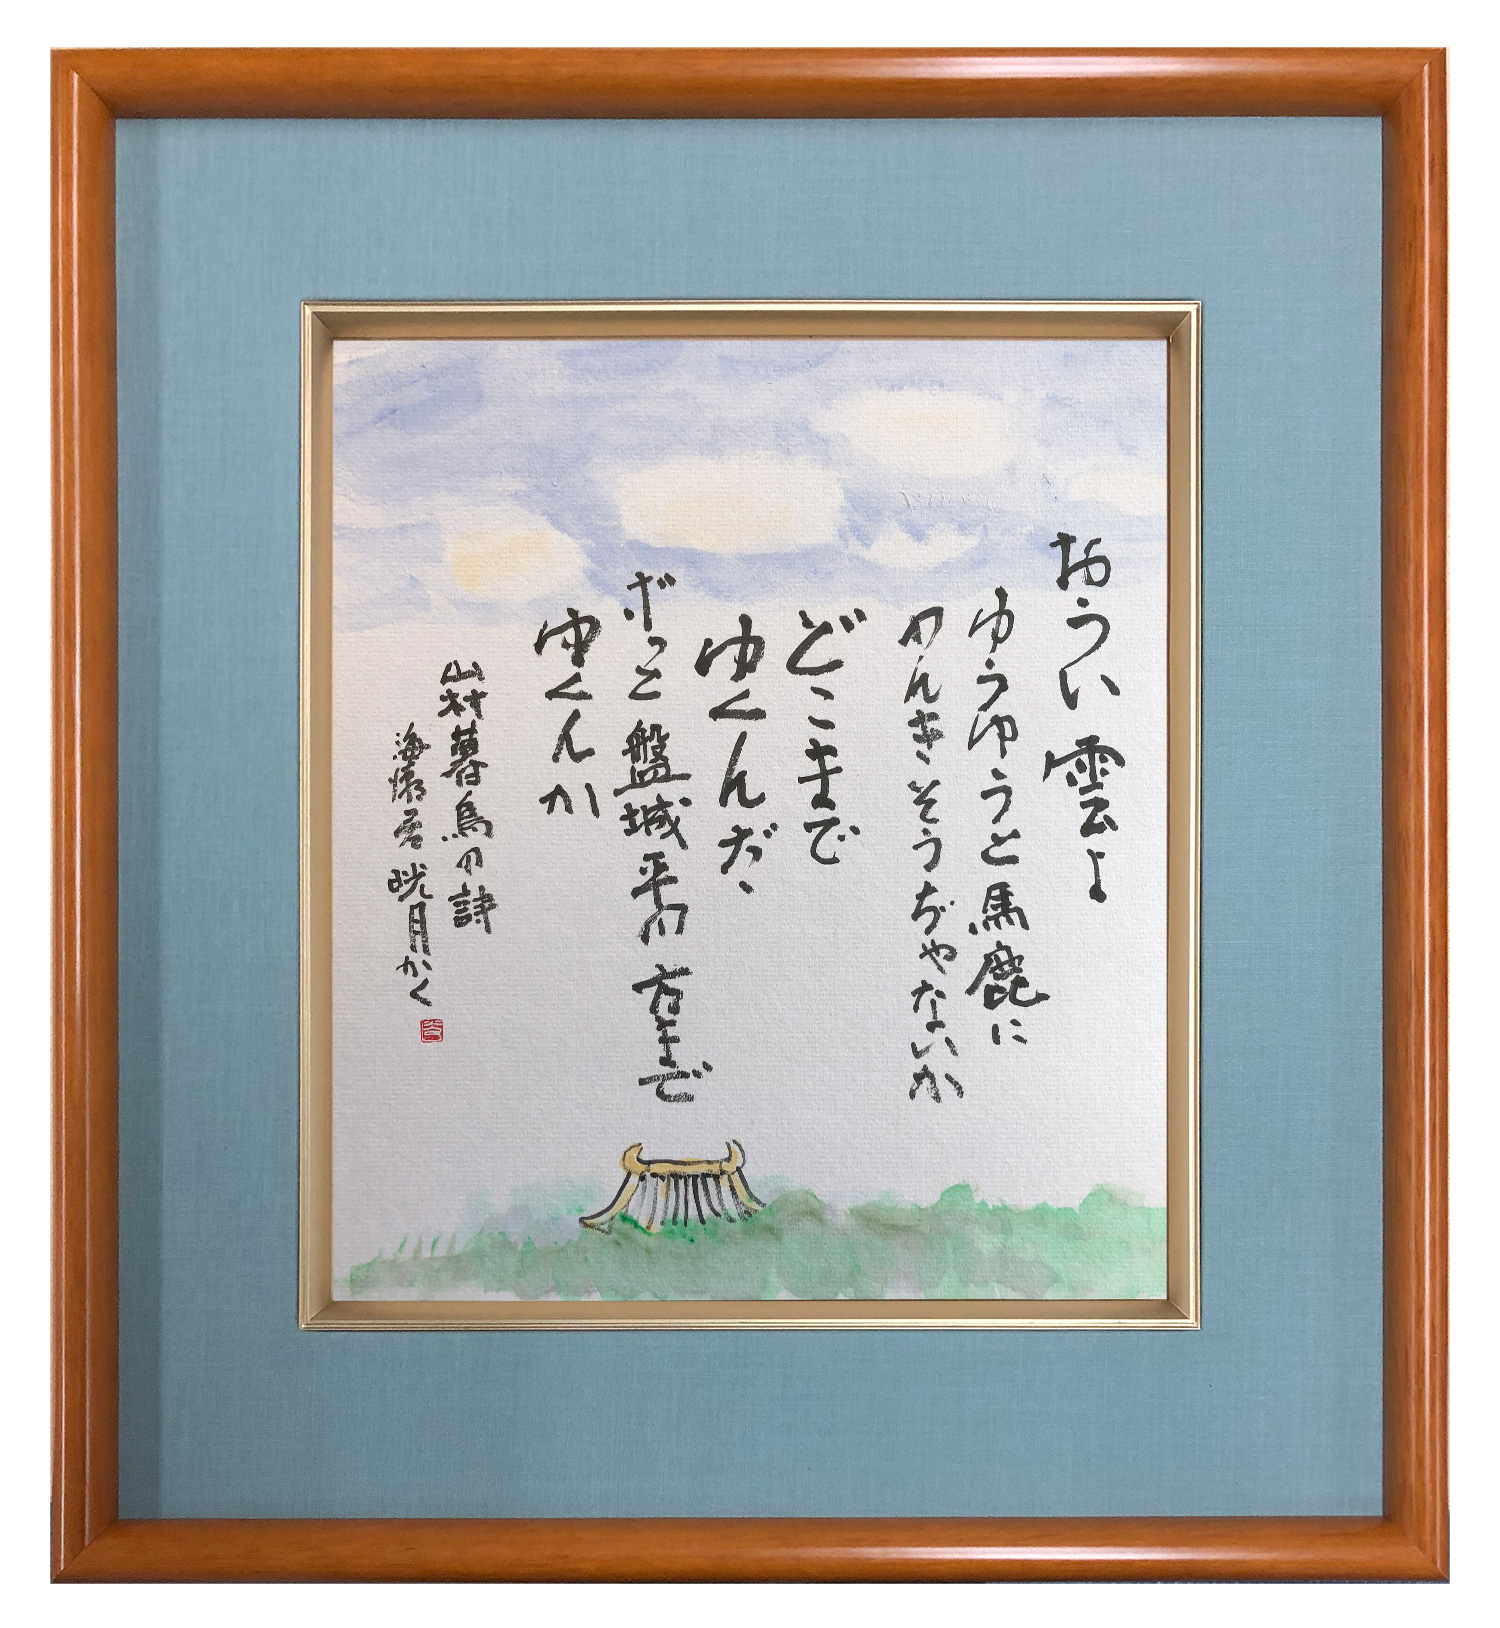 おうい雲よ
ゆうゆうと馬鹿に
のんきさうぢゃないか
どこまで
ゆくんだ、
ずっと磐城平の方まで
ゆくんか
山村暮鳥の詩
海 雲 晄月かく